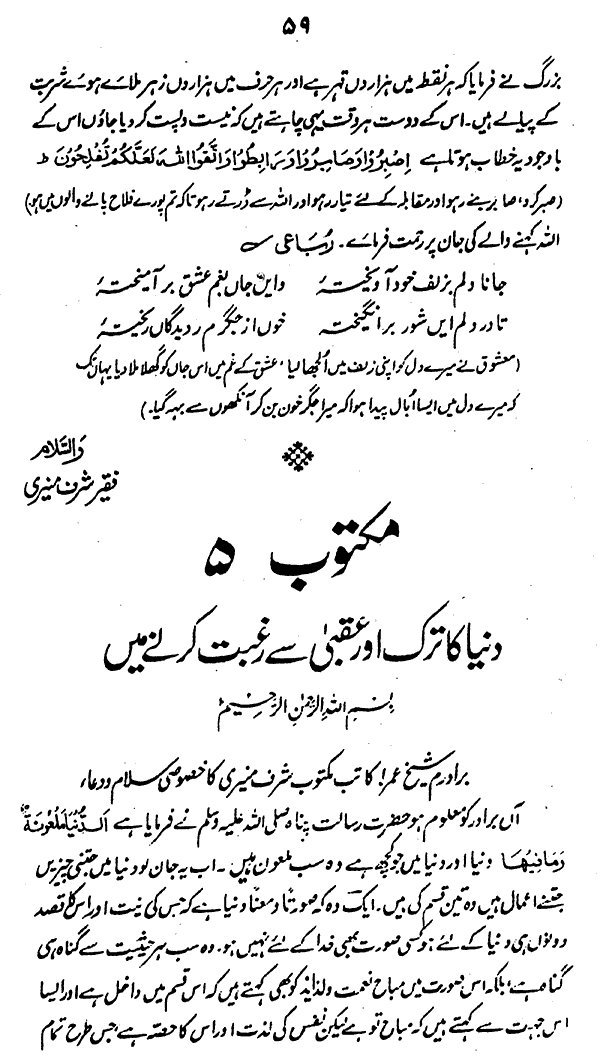 ۵۹
بزرگ نے فرمایا کہ ہر نقطہ میں ہزاروں قہر ہے اور ہر حرف میں ہزاروں زہر ملائے ہوئے شربت
کے پیالے ہیں۔ اس کے دوست ہر وقت یہی چاہتے ہیں کہ نیست و پست کر دیا جاؤں اس کے
باوجود یہ خطاب ہوتا ہے اِصْبِرُوْا وَصَابِرُوْا وَرَابِطُوْا وَاتَّقُوا اللّٰهَ لَعَلَّكُمْ تُفْلِحُوْنَ ط
(صبر کرو، صابر بنے رہو اور مقابلہ کے لئے تیار رہو اور اللہ سے ڈرتے رہو تاکہ تم پورے فلاح پانے والوں میں ہو)
اللہ کہنے والے کی جان پر رحمت فرمائے۔ رباعی ؎
جانا دلم بزلف خود آویختۂ وایں جاں بغم عشق بر آمیختۂ
تا در دلم ایں شور برانگیختہ خوں از جگرم ز دیدگاں ریختۂ
(معشوق نے میرے دل کو اپنی زلف میں الجھا لیا، عشق کے غم میں اس جاں کو گھلا ملا دیا یہاں تک
کہ میرے دل میں ایسا اُبال پیدا ہوا کہ میرا جگر خون بن کر آنکھوں سے بہہ گیا۔)
والسّلام
فقیر شرف منیری
مکتوب ۵
دنیا کا ترک اور عقبیٰ سے رغبت کرنے میں
بِسْمِ اللّٰهِ الرَّحْمٰنِ الرَّحِيْمِ
برادرم شیخ عمر! کاتب مکتوب شرف منیری کا خصوصی سلام و دعاء
آں برادر کو معلوم ہو حضرت رسالت پناہ صلی اللہ علیہ وسلم نے فرمایا ہے اَلدُّنْيَا مَلْعُوْنَةٌ
وَمَا فِيْهَا دنیا اور دنیا میں جو کچھ ہے وہ سب ملعون ہیں۔ اب یہ جان لو دنیا میں جتنی چیزیں
جتنے اعمال ہیں وہ تین قسم کی ہیں۔ ایک وہ کہ صورتاً و معناً دنیا ہے کہ جس کی نیت اور اس کا قصد
دونوں ہی دنیا کے لئے ہو کسی صورت بھی خدا کے لئے نہیں ہو۔ وہ سب ہر حیثیت سے گناہ ہی
گناہ ہے، بلکہ اس صورت میں مباح نعمت و لذائذ کو بھی کہتے ہیں کہ اس قسم میں داخل ہے اور ایسا
اس جہت سے کہتے ہیں کہ مباح تو ہے لیکن نفس کی لذت اور اس کا حصہ ہے، جس طرح تمام